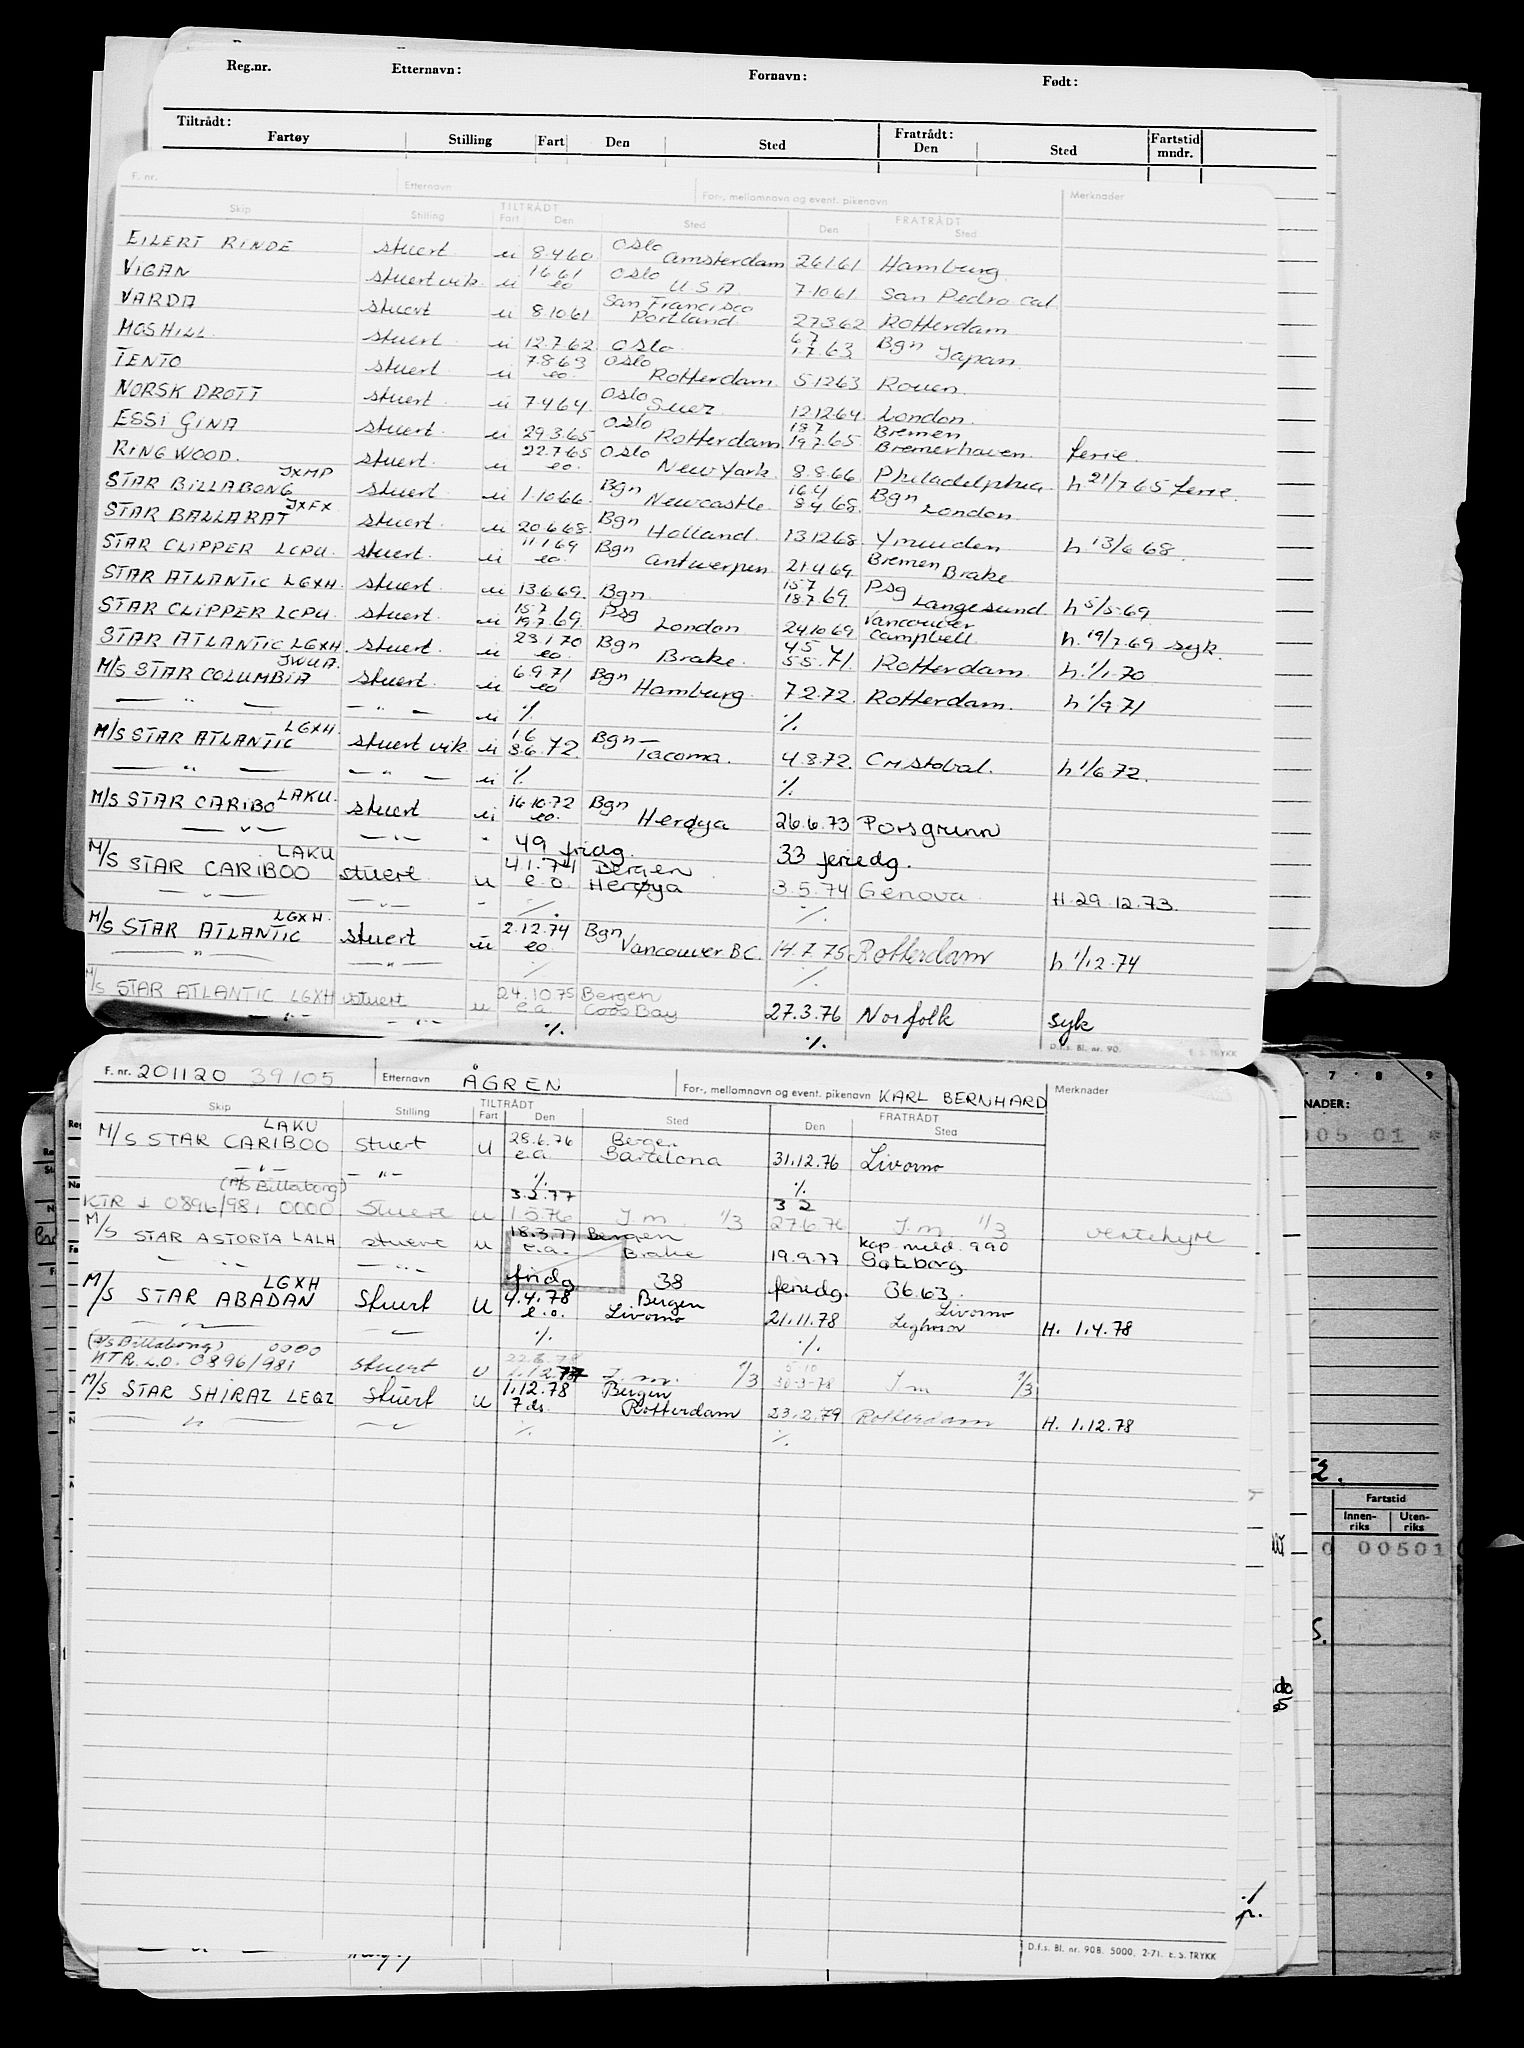 Reg.nr. Etternavn: Fornavn: Født:
Tiltrådt: Fratrådt: Fartstid
Fartøy Stilling Fart Den Sted Den Sted mndr.
F. nr. Etternavn For-, mellomnavn og event. pikenavn Merknader
TILTRÅDT FRATRÅDT
Skip Stilling Fart Den Sted Den Sted
EILERT RINDE stuert u 8.4.60 Oslo Amsterdam 26161 Hamburg
VIGAN stuert vik. u 16 61 eo Oslo USA 7.10.61 San Pedro Cal.
VARDA stuert u 8.10.61 San Francisco Portland 27362 Rotterdam
MOSHILL stuert u 12.7.62 Oslo 67 1.7.63 Bgn Japan
TENTO stuert u 7.8.63 eo. Oslo Rotterdam 5.1263 Rouen
NORSK DROTT stuert u 7.4.64 Oslo Suez 12.12.64 London
ESSI GINA stuert u 29.3.65 Oslo Rotterdam 187 19.7.65 Bremen Bremerhaven ferie
RINGWOOD. stuert u 22.7.65 eo. Oslo New York 8.8.66 Philadelphia h 21/7.65 ferie.
STAR BILLABONG JXMP stuert u 1.10.66 Bgn Newcastle 164 8.4.68 Bgn London
STAR BALLARAT JXFX stuert u 20.6.68. Bgn Holland 13.12.68 Ymuiden h 13/6 68
STAR CLIPPER LCPU. stuert u 11.1.69 eo. Bgn Antwerpen 21.4.69 Bremen Brake
STAR ATLANTIC LGXH. stuert u 13.6.69. Bgn 15.7 18.7.69 Psg Langesund h 5/5.69
STAR CLIPPER LCPU stuert u 15.7 19.7.69 Psg London 24.10.69 Vancouver Campbell h. 19/7.69 syk.
STAR ATLANTIC LGXH. stuert u 23.1.70 eo. Bgn Brake. 4.5 5.5.71 Rotterdam h. 1/1.70
M/S STAR COLUMBIA JWUA. stuert u 6.9.71 eo Bgn Hamburg 7.2.72 Rotterdam. h 1/9.71
— " — — " — u ./. ./.
M/S STAR ATLANTIC LGXH. stuert vik. u 1.6 3.6.72 Bgn Tacoma. 4.8.72. Cristobal. h 1/6.72.
— " — — " — u ./. ./.
M/S STAR CARIBO LAKU. stuert u 16.10.72 eo. Bgn Herøya 26.6.73 Porsgrunn
— " — — " — " 49 fridg. 33 feriedg.
M/S STAR CARIBOO LAKU stuert u 4.1.74 e.o. Bergen Herøya 3.5.74 Genova H.29.12.73.
— " — — " — - ./. ./.
M/S STAR ATLANTIC LGXH. stuert u 2.12.74 eo Bgn Vancouver BC. 14.7.75 Rotterdam h 1/12.74
— " — — " — ./. ./.
M/S STAR ATLANTIC LGXH stuert u 24.10.75 e.a. Bergen Coos Bay 27.3.76 Norfolk syk
— " — — " — ./. ./.
D.f.s. Bl. nr. 90. E. S. TRYKK
F. nr. 201120 39105 Etternavn ÅGREN For-, mellomnavn og event. pikenavn KARL BERNHARD Merknader
TILTRÅDT FRATRÅDT
Skip Stilling Fart Den Sted Den Sted
M/S STAR CARIBOO LAKU stuert u 28.6.76 e.a Bergen Barcelona 31.12.76 Livorno
— " — — " — ./. ./.
(M/S Billabong) 3.2.77 3 2
KTR 1 0896/981 0000 Stuert u 1.5.76 J.m. 1/3 27.6.76 J.m 1/3 ventehyre
M/S STAR ASTORIA LALH stuert u 18.3.77 e.a. Bergen Brake 19.9.77 kap. meld. 990 Gøteborg
— " — — " — fridg. 38 feriedg. 36.63.
M/S STAR ABADAN LGXH Stuert u 4.4.78 e.o. Bergen Livorno 21.11.78 Livorno Leghorn H. 1.4.78
— " — — " — ./. ./.
(M/S Billabong) 0000
KTR. L.O. 0896/981 stuert u 1.12.77 J.m. 1/3 30-3-78 J.m 1/3
M/S STAR SHIRAZ LEQZ stuert u 1.12.78 7 ds. Bergen Rotterdam 23.2.79 Rotterdam H. 1.12.78
— " — — " — ./. ./.
D.f.s. Bl. nr. 90B. 5000. 2-71. E. S. TRYKK
7 8 9
NADER:
005 01 *
Fartstid
Innen-riks Uten-riks
0 00501